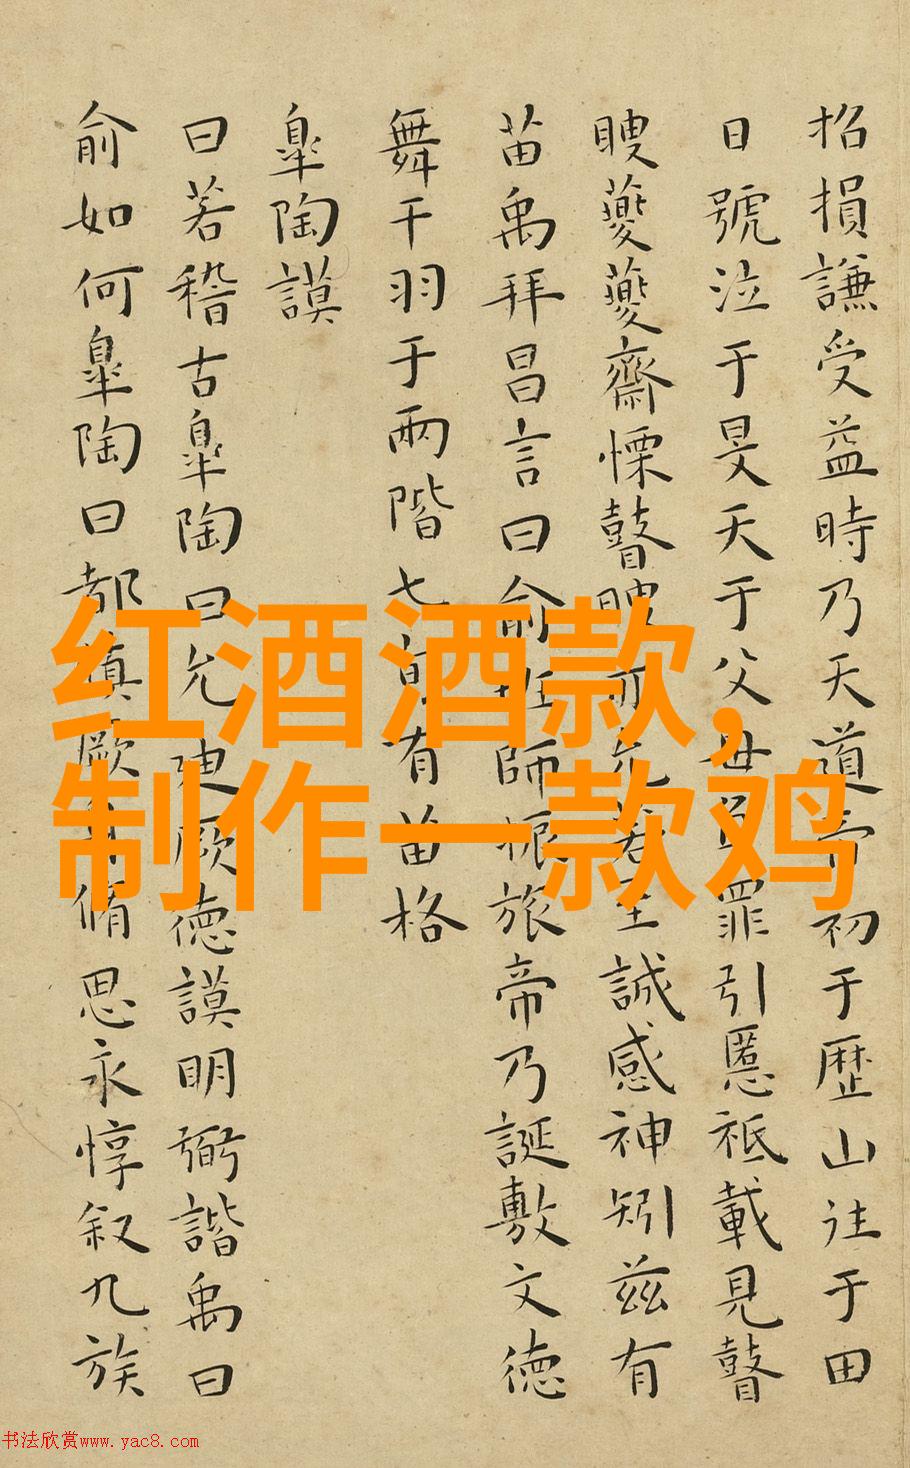 招損謙受益時乃天道帝初于歴山往于田
日號泣于旻天于父母負罪引慝祗載見瞽
瞍夔夔齋慄瞽瞍亦允若至諴感神矧茲有
苗禹拜昌言曰俞班師振旅帝乃誕敷文德
舞干羽于兩階七旬有苗格
皐陶謨
曰若稽古皐陶曰允迪厥德謨明弼諧禹曰
俞如何皐陶曰都慎厥身脩思永惇叙九族
红酒酒款，
制作一款鸡
书法欣赏www.yac8.com